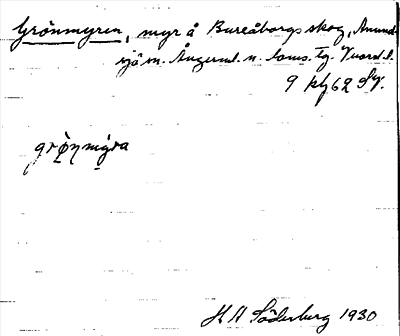 Grönmyren, myr å Bureåborgs skog, Anund-
sjö sn. Ångerml. n. doms. Tg. Nord. l.
9 kf 62 SV.
grònmy̨ra
H A Söderberg 1930